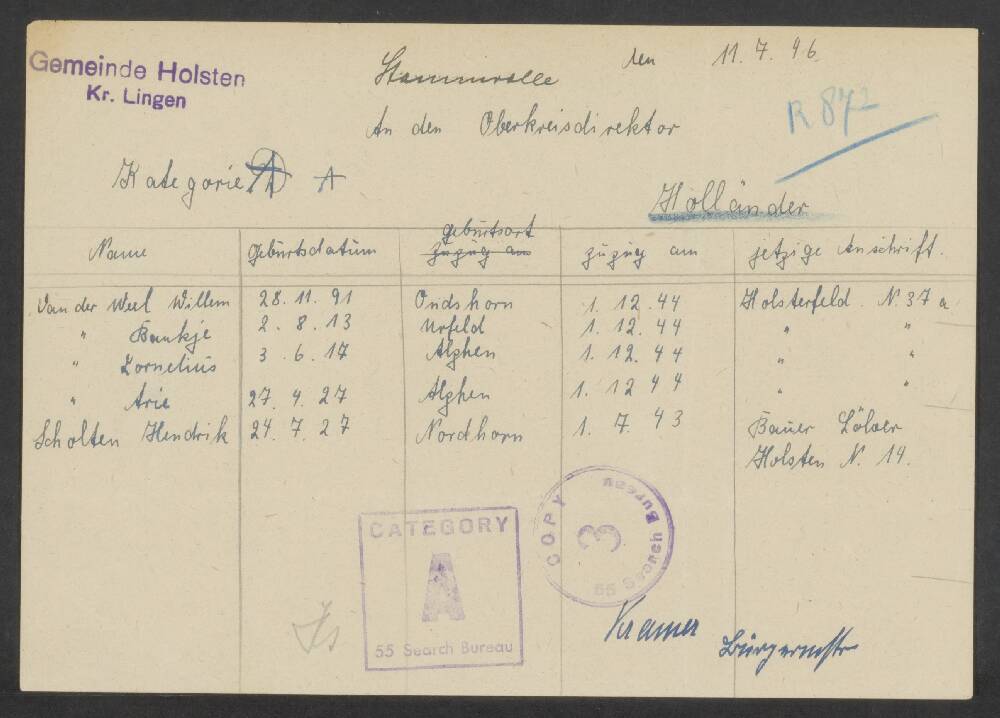 Gemeinde Holsten
Kr. Lingen
Stammrolle den 11. 7. 46.
An den Oberkreisdirektor
R 872
Kategorie A A
Holländer
Name geburtsdatum geburtsort zuzug am zuzug am jetzige Anschrift.
Van der Weel Willem 28. 11. 91 Oudshorn 1. 12. 44 Holsterfeld N. 37 a
" Baukje 2. 8. 13 Urfeld 1. 12. 44 " "
" Kornelius 3. 6. 17 Alghen 1. 12. 44 " "
" Arie 27. 4. 27 Alghen 1. 12 44 " "
Scholten Hendrik 24. 7. 27 Nordhorn 1. 7. 43 Bauer
Holsten N. 14.
CATEGORY
A
55 Search Bureau
COPY
3
55 Search Bureau
Kramer
Bürgermstr